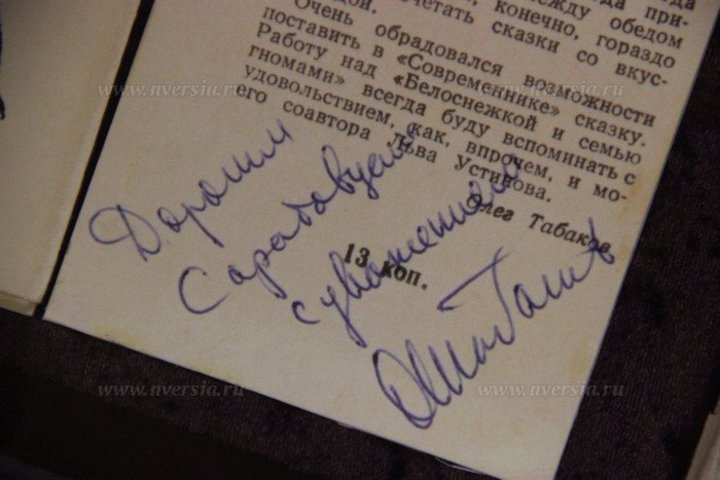 при-
между обедом
конечно, гораздо
сочетать сказки со вкус-
Очень обрадовался возможности
поставить в «Современнике» сказку.
Работу над «Белоснежкой и семью
гномами» всегда буду вспоминать с
удовольствием, как, впрочем, и мо-
его соавтора Льва Устинова.
Олег Табаков
13 коп.
Дорогим
Саратовцам
с уважением
О Табаков
www.nversia.ru
www.nversia.ru
www.nversia.ru
www.nversia.ru